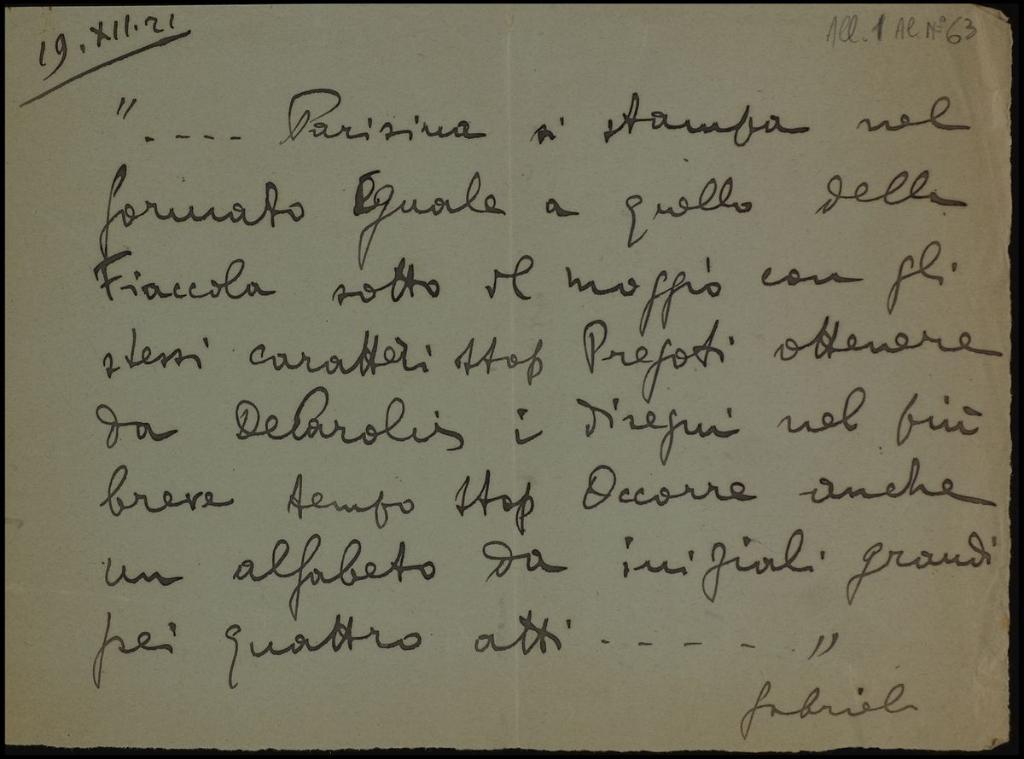 19.XII.21
All. 1 Al. N° 63
".---- Parisina si stampa nel
formato Eguale a quello della
Fiaccola sotto il moggio con gli
stessi caratteri stop Pregoti ottenere
da DeCarolis i disegni nel più
breve tempo stop Occorre anche
un alfabeto da iniziali grandi
pei quattro atti - - - - - "
Gabriele